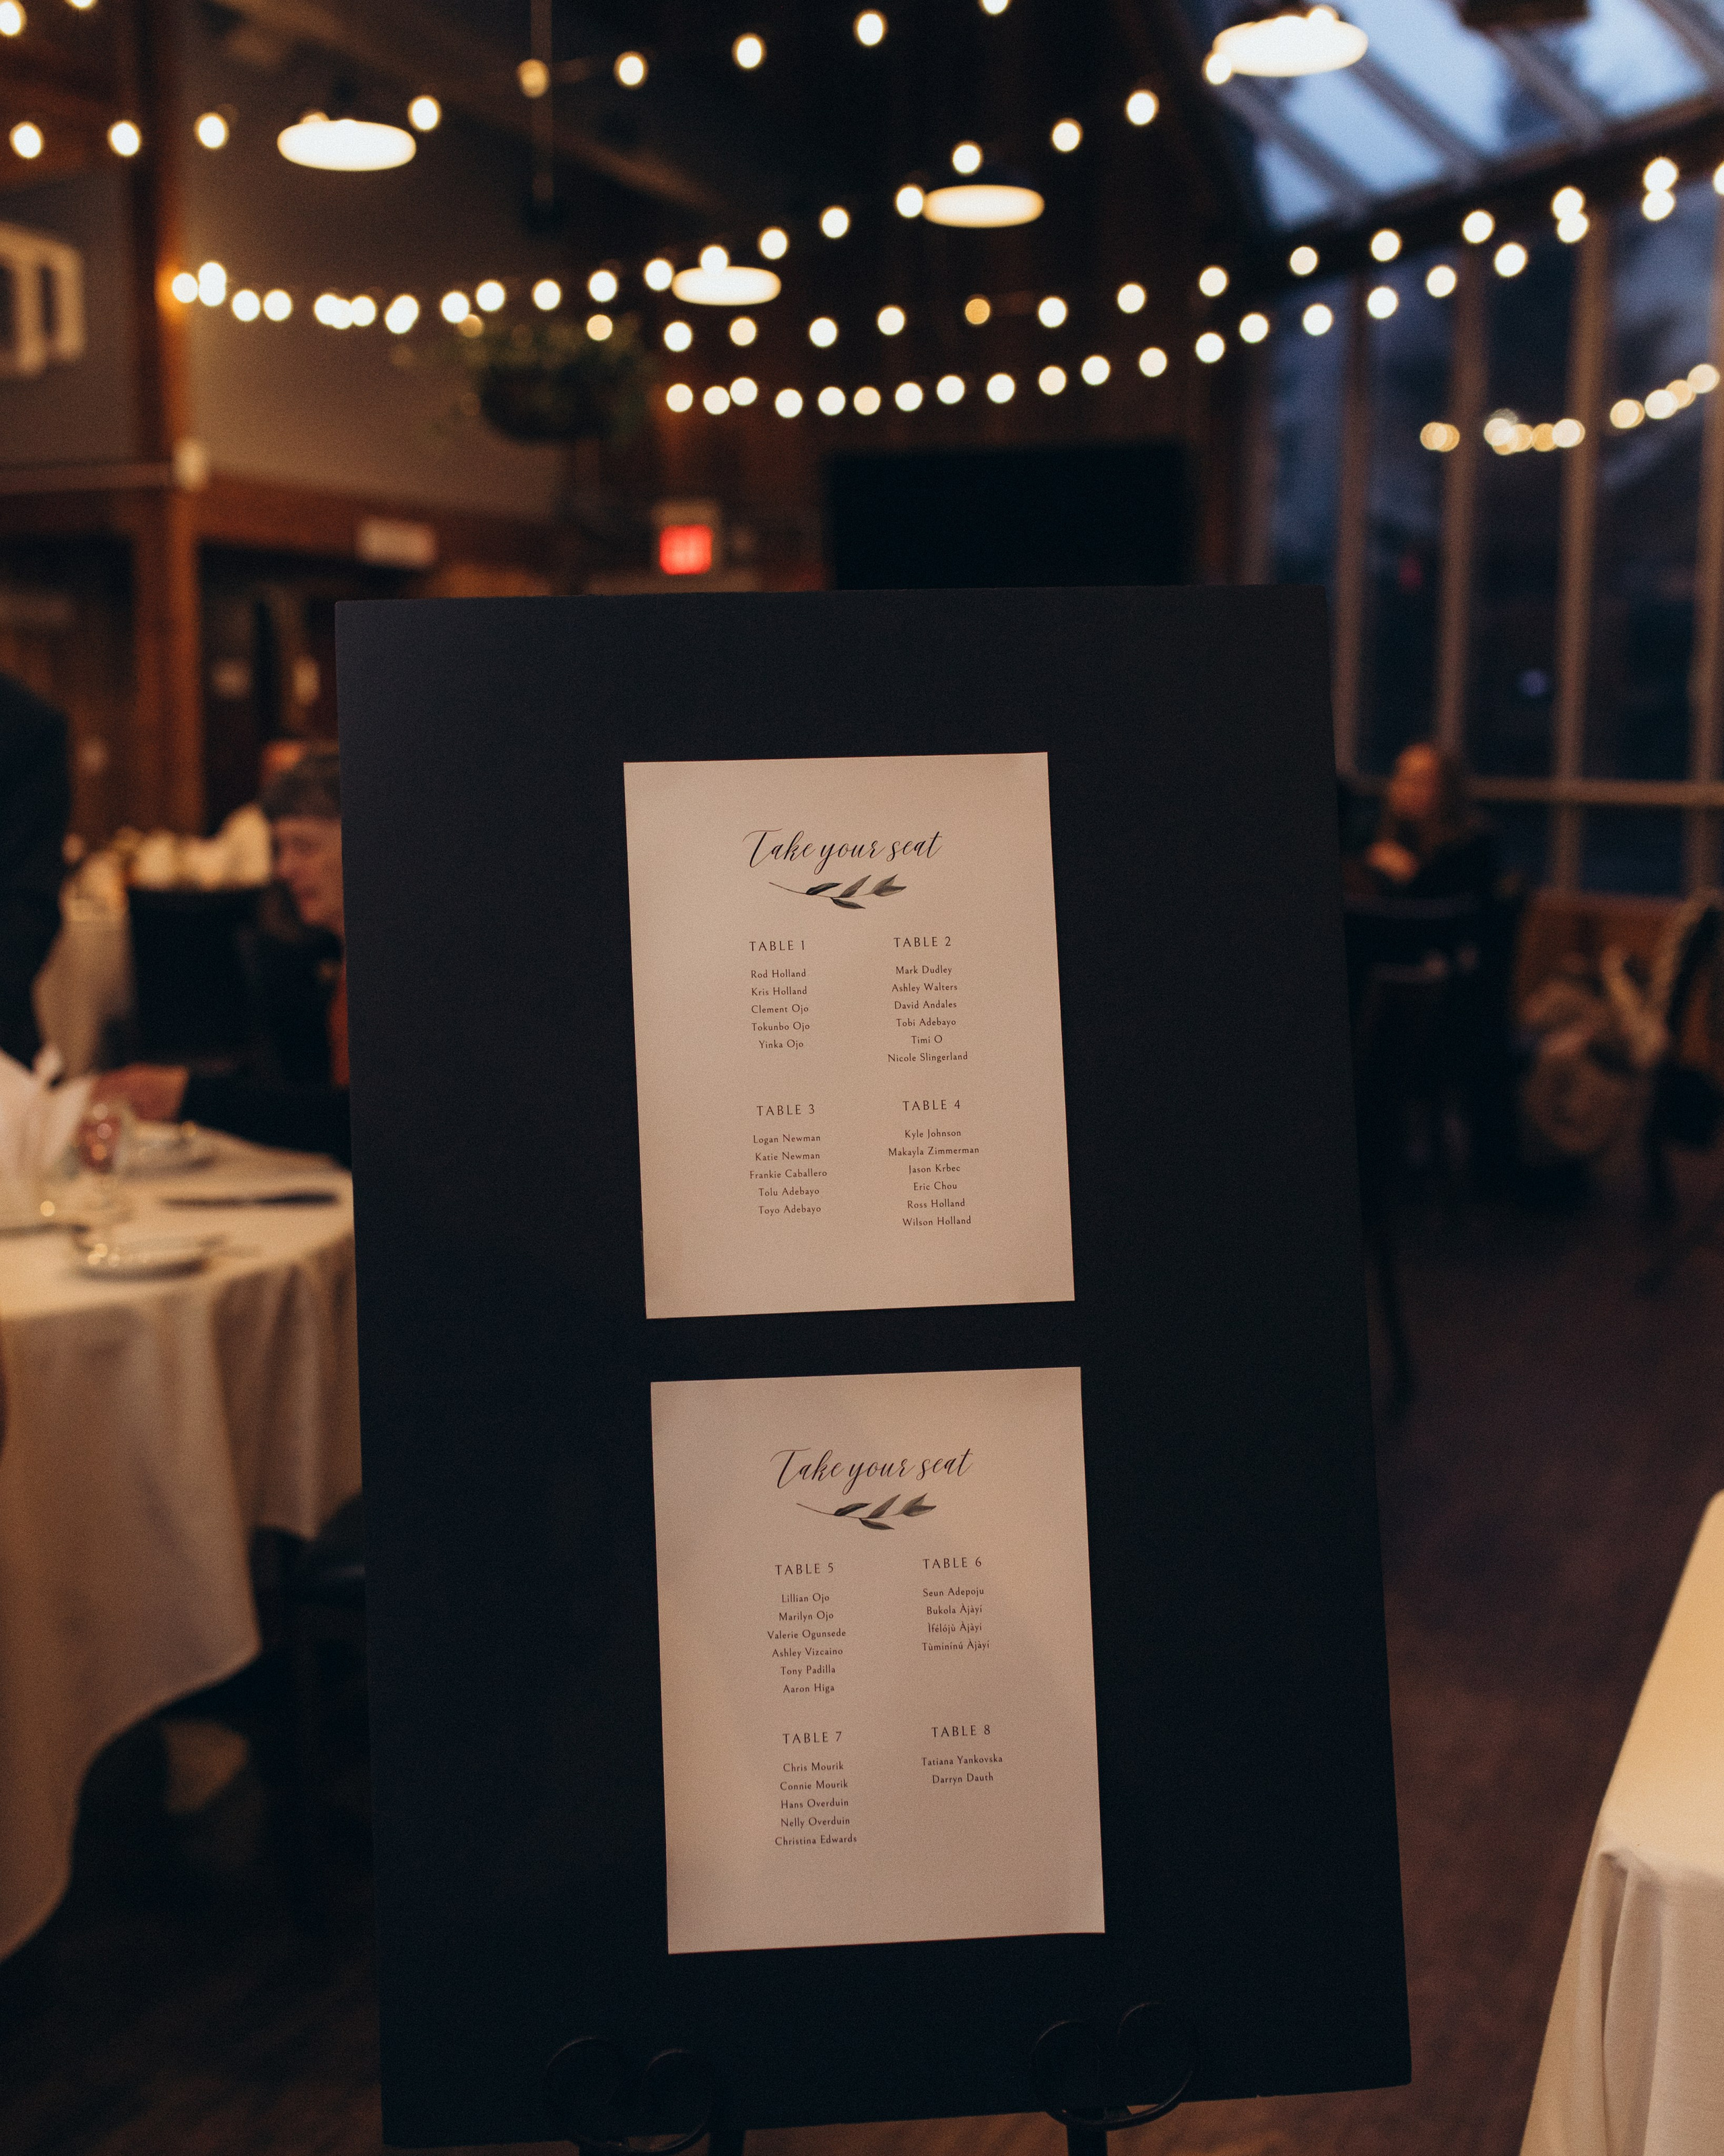 Take your seat
TABLE 1
Rod Holland
Kris Holland
Clement Ojo
Tokunbo Ojo
Yinka Ojo
TABLE 2
Mark Dudley
Ashley Walters
David Andales
Tobi Adebayo
Timi O
Nicole Slingerland
TABLE 3
Logan Newman
Katie Newman
Frankie Caballero
Tolu Adebayo
Toyo Adebayo
TABLE 4
Kyle Johnson
Makayla Zimmerman
Jason Krbec
Eric Chou
Ross Holland
Wilson Holland
Take your seat
TABLE 5
Lillian Ojo
Marilyn Ojo
Valerie Ogunsede
Ashley Vizcaino
Tony Padilla
Aaron Higa
TABLE 6
Seun Adepoju
Bukola Àjàyí
Ìfélójù Àjàyí
Tùmínínú Àjàyí
TABLE 7
Chris Mourik
Connie Mourik
Hans Overduin
Nelly Overduin
Christina Edwards
TABLE 8
Tatiana Yankovska
Darryn Dauth